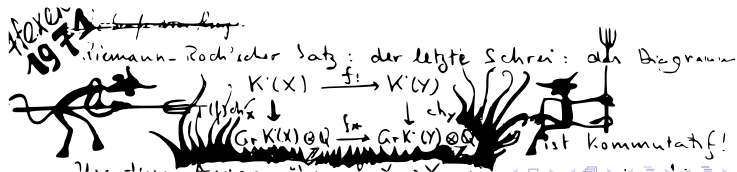 Hexen
1971
Riemann-Roch'scher Satz: der letzte Schrei: das Diagramm
K·(X) f! K·(Y)
T(f)ch_X ch_Y
Gr K·(X)⊗Q f* Gr K·(Y)⊗Q
Z Z
ist kommutatif!